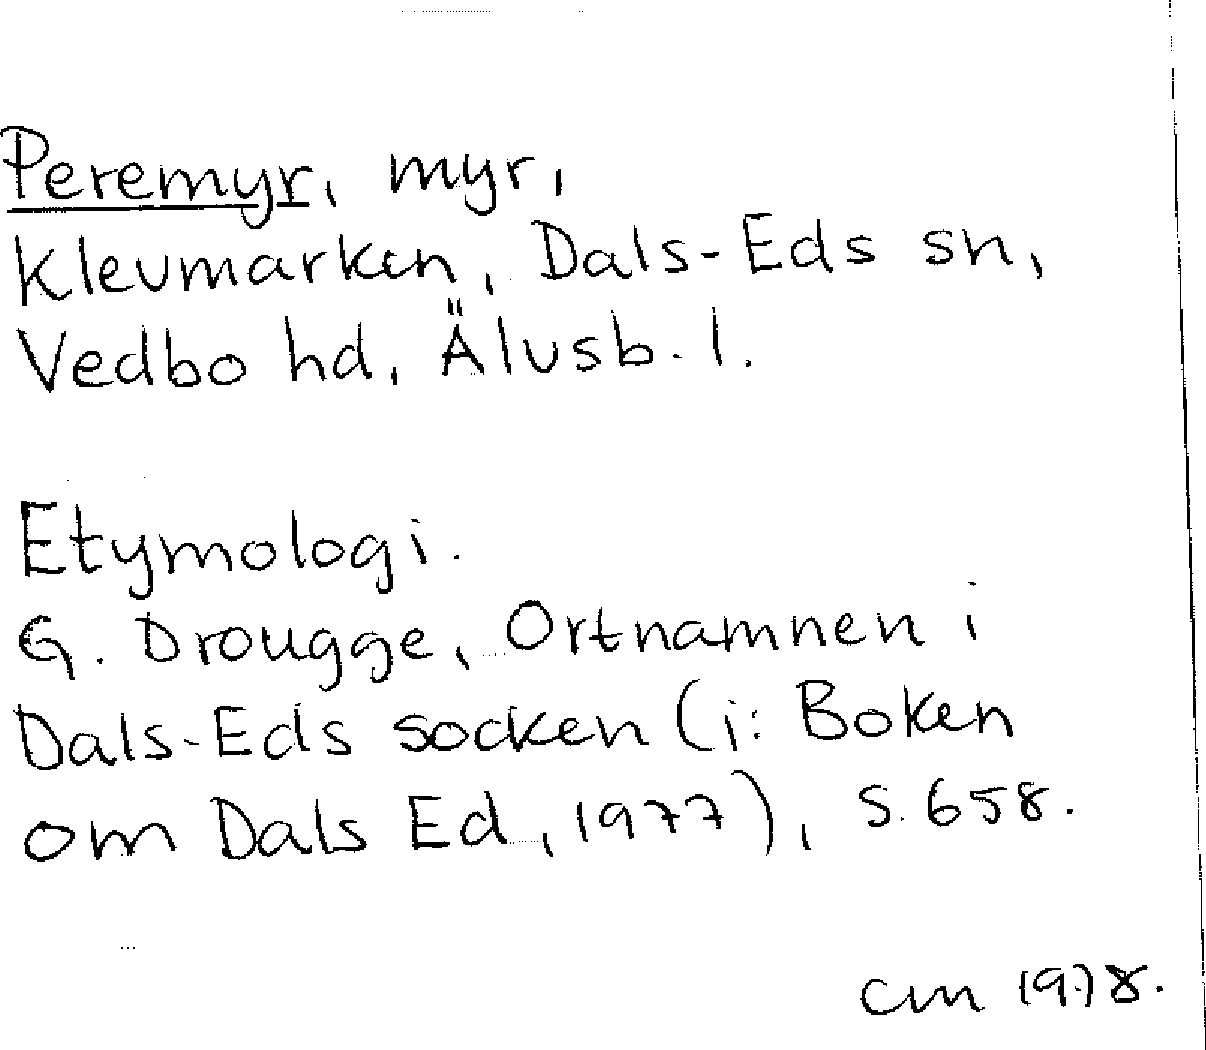 Peremyr, myr,
Klevmarken, Dals-Eds sn,
Vedbo hd, Älvsb. l.
Etymologi.
G. Drougge, Ortnamnen i
Dals-Eds socken (i: Boken
om Dals Ed, 1977), s. 658.
CM 1978.